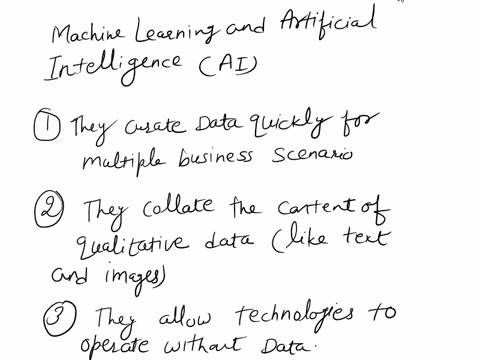 Machine Learning and Artificial
Intelligence (AI)
① They curate Data quickly for
multiple business scenario
② They collate the content of
qualitative data (like text
and images)
③ They allow technologies to
operate without Data.